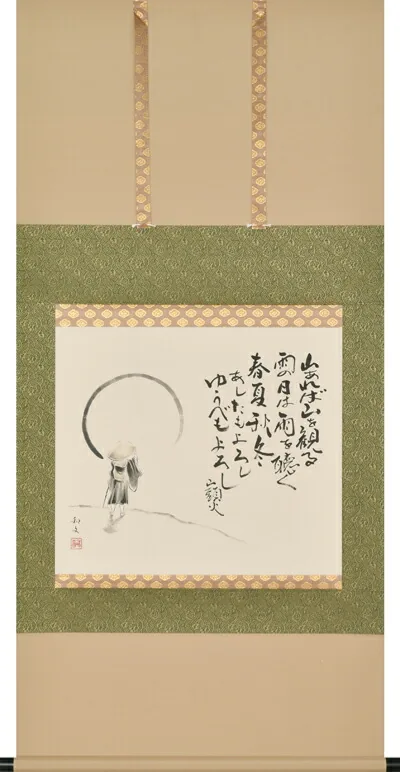 山あれば山を観る
雨の日は雨を聴く
春夏秋冬
あしたもよろし
ゆうべもよろし
山頭火